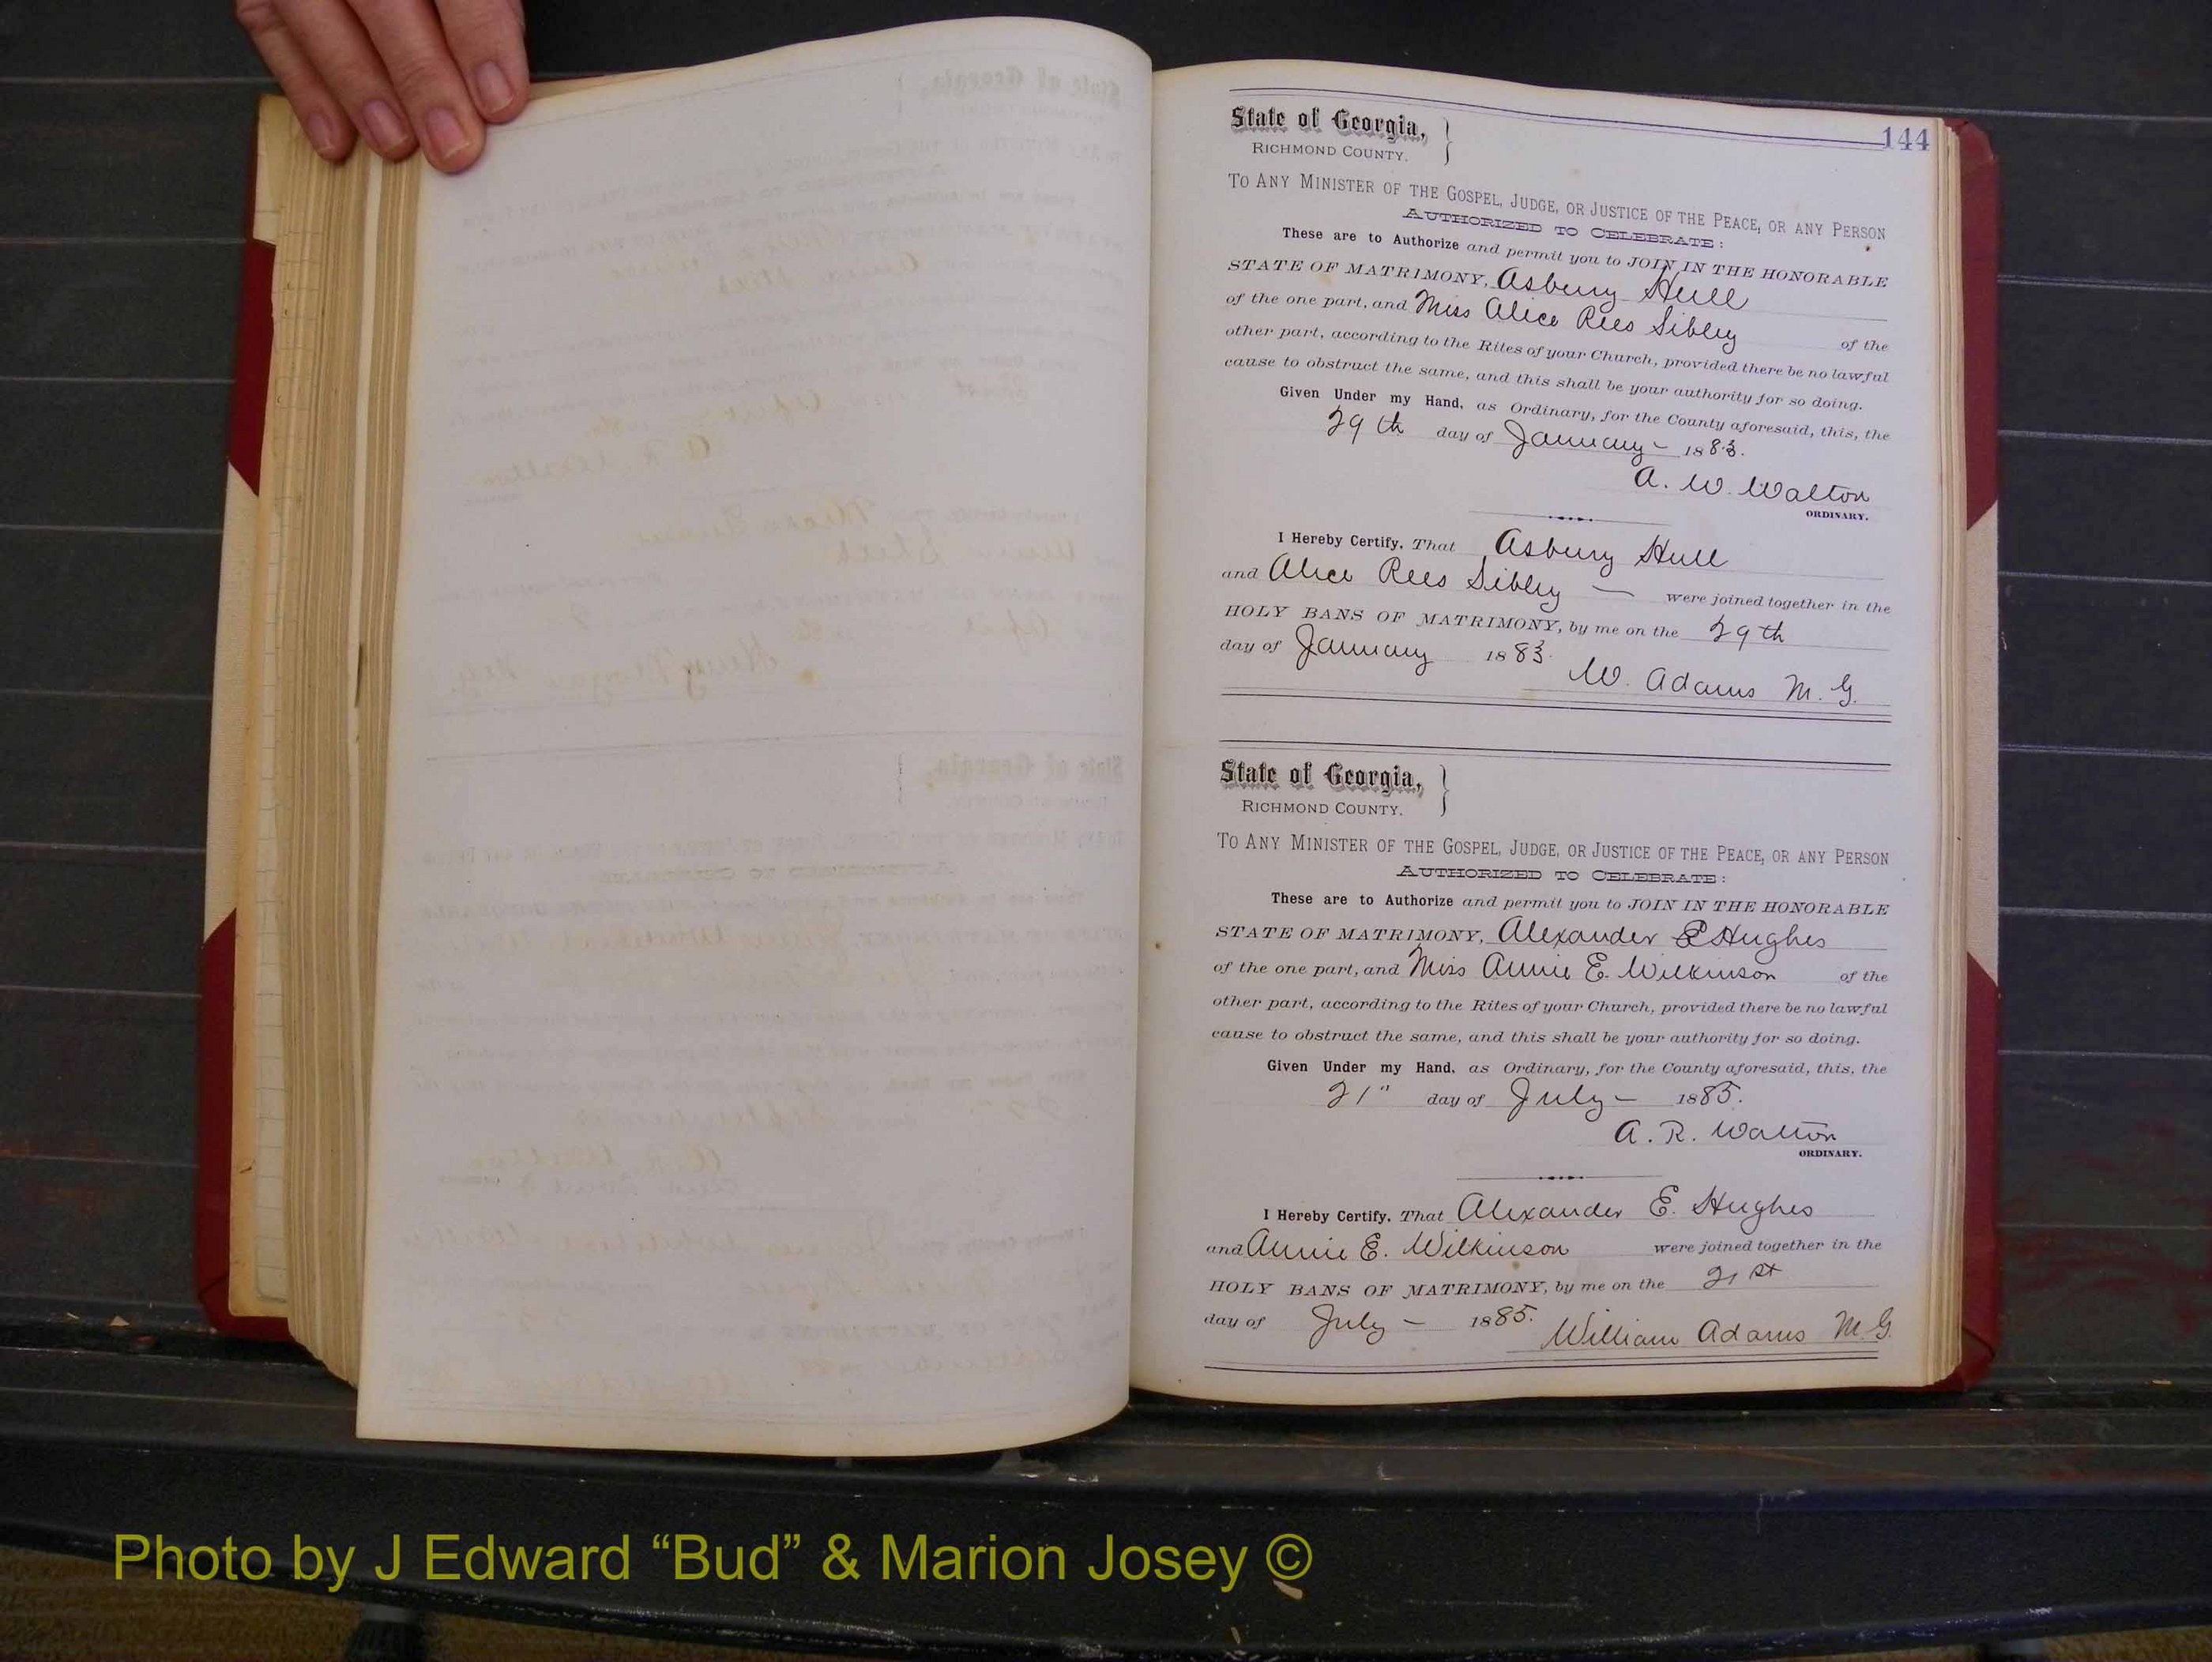 144
State of Georgia,
RICHMOND COUNTY.
TO ANY MINISTER OF THE GOSPEL, JUDGE, OR JUSTICE OF THE PEACE, OR ANY PERSON
AUTHORIZED TO CELEBRATE:
These are to Authorize and permit you to JOIN IN THE HONORABLE
STATE OF MATRIMONY, Asbury Hull
of the one part, and Miss Alice Rees Sibley of the
other part, according to the Rites of your Church, provided there be no lawful
cause to obstruct the same, and this shall be your authority for so doing.
Given Under my Hand, as Ordinary, for the County aforesaid, this, the
29th day of January - 1883.
A. W. Walton
ORDINARY.
I Hereby Certify, That Asbury Hull
and Alice Rees Sibley - were joined together in the
HOLY BANS OF MATRIMONY, by me on the 29th
day of January 1883.
W. Adams M. G.
State of Georgia,
RICHMOND COUNTY.
TO ANY MINISTER OF THE GOSPEL, JUDGE, OR JUSTICE OF THE PEACE, OR ANY PERSON
AUTHORIZED TO CELEBRATE:
These are to Authorize and permit you to JOIN IN THE HONORABLE
STATE OF MATRIMONY, Alexander E Hughes
of the one part, and Miss Annie E. Wilkinson of the
other part, according to the Rites of your Church, provided there be no lawful
cause to obstruct the same, and this shall be your authority for so doing.
Given Under my Hand, as Ordinary, for the County aforesaid, this, the
21" day of July - 1885.
A. R. Walton
ORDINARY.
I Hereby Certify, That Alexander E. Hughes
and Annie E. Wilkinson were joined together in the
HOLY BANS OF MATRIMONY, by me on the 21st
day of July - 1885.
William Adams M. G.
Photo by J Edward “Bud” & Marion Josey ©